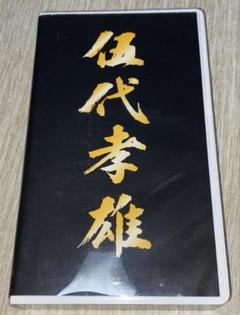 伍代孝雄